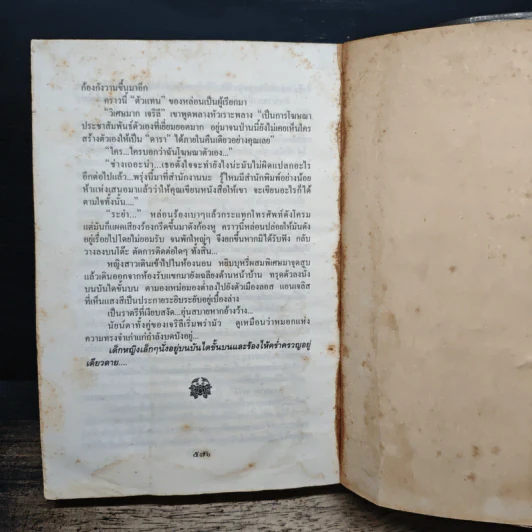 ก้องกังวานขึ้นมาอีก
คราวนี้ “ตัวแทน” ของหล่อนเป็นผู้เรียกมา
“วิเศษมาก เจริลี” เขาพูดพลางหัวเราะพลาง “เป็นการโฆษณา
ประชาสัมพันธ์ตัวเองที่เยี่ยมยอดมาก อยู่มาจนป่านนี้ยังไม่เคยเห็นใคร
สร้างตัวเองให้เป็น “ดารา” ได้ภายในคืนเดียวอย่างคุณเลย”
“ใคร...ใครบอกว่าฉันโฆษณาตัวเอง...”
“ช่างเถอะน่า...เธอตั้งใจจะทำยังไงน่ะมันไม่ผิดแปลกอะไร
อีกต่อไปแล้ว...พรุ่งนี้มาที่สำนักงานนะ รู้ไหมมีสำนักพิมพ์อย่างน้อย
ห้าแห่งเสนอมาแล้วว่าให้คุณเขียนหนังสือให้เขา จะเขียนอะไรก็ได้
ตามใจทั้งนั้น....”
“ระยำ...” หล่อนร้องเบาๆแล้วกระแทกโทรศัพท์ดังโครม
แต่มันก็แผดเสียงร้องกรีดขึ้นมาดังก้องหู คราวนี้หล่อนปล่อยให้มันดัง
อยู่เรื่อยไปโดยไม่ยอมรับ จนพักใหญ่ๆ จึงยกขึ้นหากมิได้รับฟัง กลับ
วางลงบนโต๊ะ ตัดการติดต่อใดๆ ทั้งสิ้น...
หญิงสาวเดินเข้าไปในห้องนอน หยิบบุหรี่ผสมพิเศษมาจุดสูบ
แล้วเดินออกจากห้องรับแขกมายังเฉลียงด้านหน้าบ้าน ทรุดตัวลงนั่ง
บนบันไดขั้นบน ตามองเหม่อมองต่ำลงไปยังตัวเมืองลอส แอนเจลิส
ที่เห็นแสงสีเป็นประกายระยิบระยับอยู่เบื้องล่าง
เป็นราตรีที่เงียบสงัด...อุ่นสบายหากอ้างว้าง...
นัยน์ตาทั้งคู่ของเจริลีเริ่มพร่ามัว ดูเหมือนว่าหมอกแห่ง
ความทรงจำเก่าแก่กำลังบดบังอยู่...
เด็กหญิงเล็กๆนั่งอยู่บนบันไดขั้นบนและร้องไห้คร่ำครวญอยู่
เดียวดาย....
๕๗๖